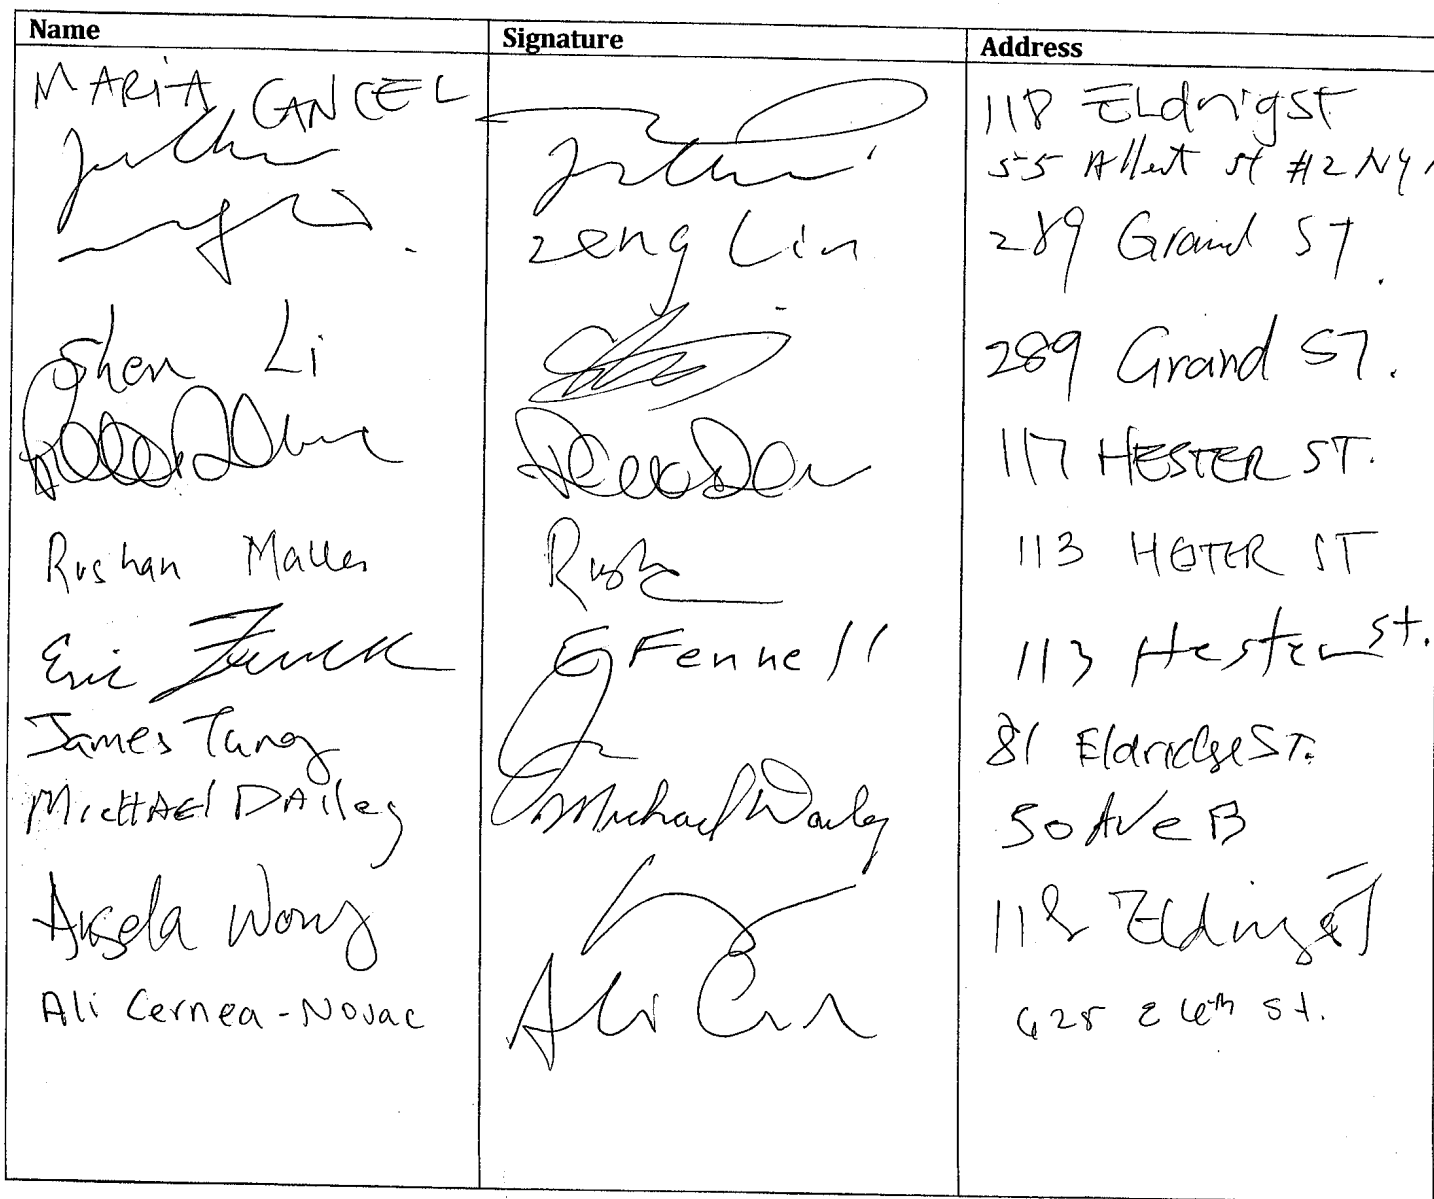 Name Signature Address
MARIA CANCEL 118 ELdrigST
55 Allent st #2 NY
Zeng Lin 289 Grand ST.
Shen Li 289 Grand ST.
117 HESTER ST.
Rushan 113 HESTER ST
Eric E Fennell 113 Hester St.
James Tang 81 Eldridge ST.
MICHAEl DAiley Michael Dailey 50 AVe B
Angela Wong 118
Ali Cernea-Novac Ali 628 E 6th St.